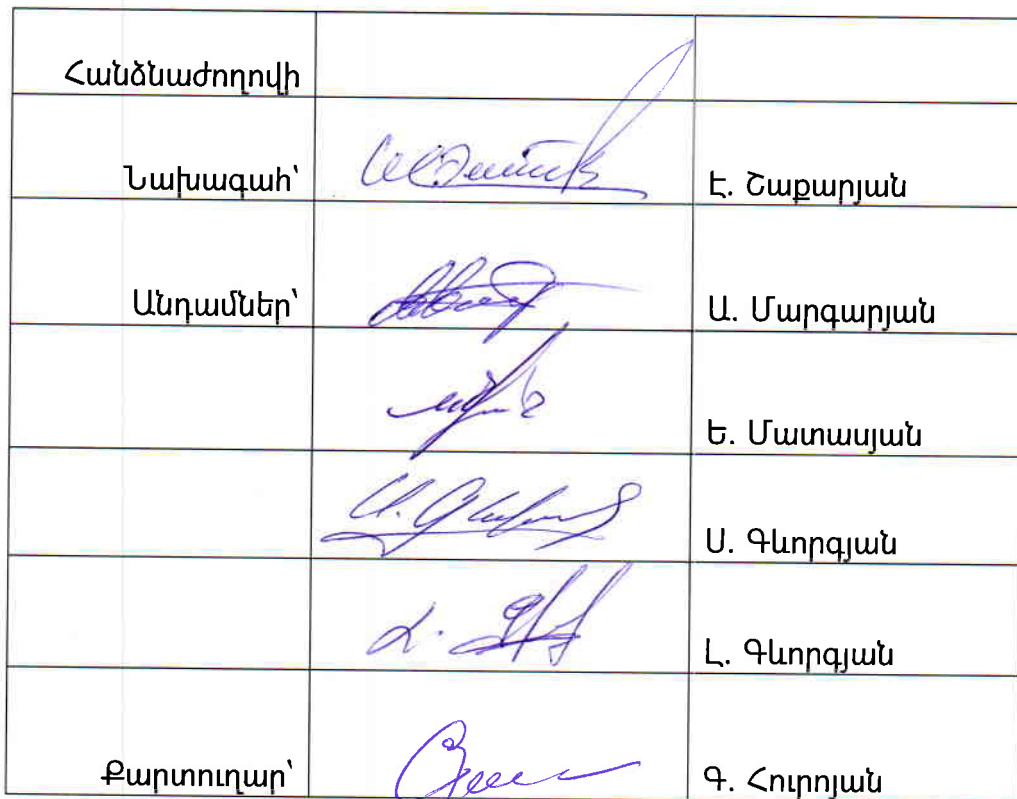 Հանձնաժողովի
Նախագահ՝ Է. Շաքարյան
Անդամներ՝ Ա. Մարգարյան
Ե. Մատասյան
Ս. Գևորգյան
Լ. Գևորգյան
Քարտուղար՝ Գ. Հուրոյան